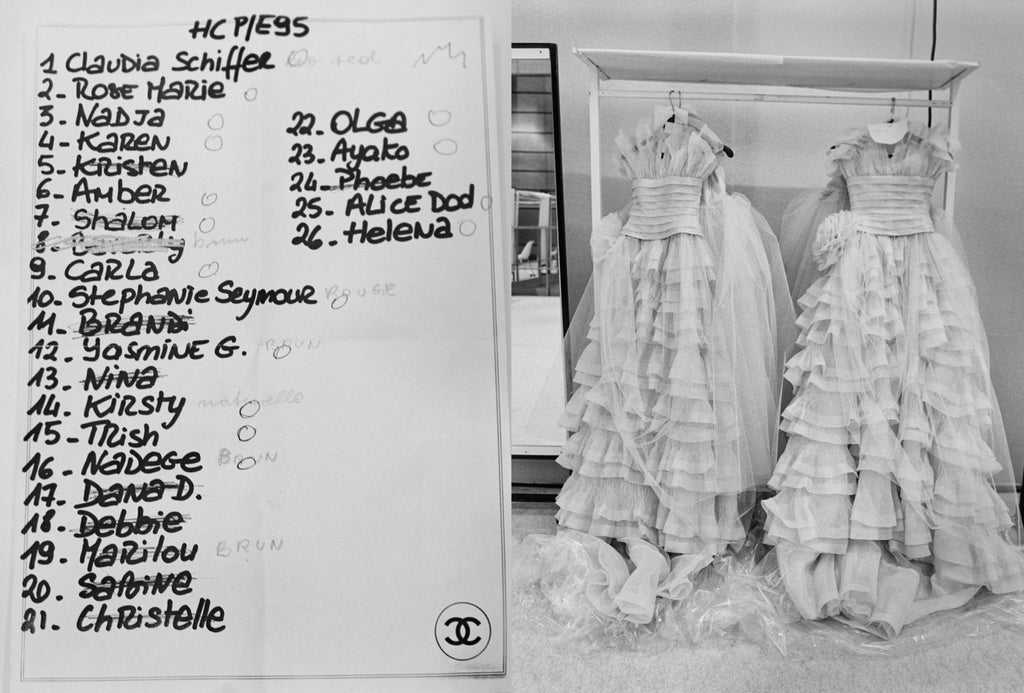 HC P/E95
1 Claudia Schiffer red
2- ROSE MARIE
3- NADJA
4- KAREN
5- Kristen
6- AMBER
7- SHALOM
8- brun
9- CARLA
10- Stephanie Seymour ROUGE
11- BRANDI
12- YASMINE G. BRUN
13- NINA
14- KIRSTY naturelle
15- TRISH
16- NADEGE BRUN
17- DANA D.
18- Debbie
19- MARILOU BRUN
20- SABINE
21- CHRISTELLE
22- OLGA
23- Ayako
24- Phoebe
25- ALICE DOD
26- Helena